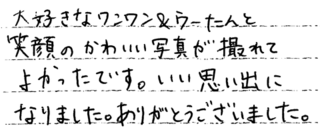 大好きなワンワン&うーたんと
笑顔のかわいい写真が撮れて
よかったです。いい思い出に
なりました。ありがとうございました。